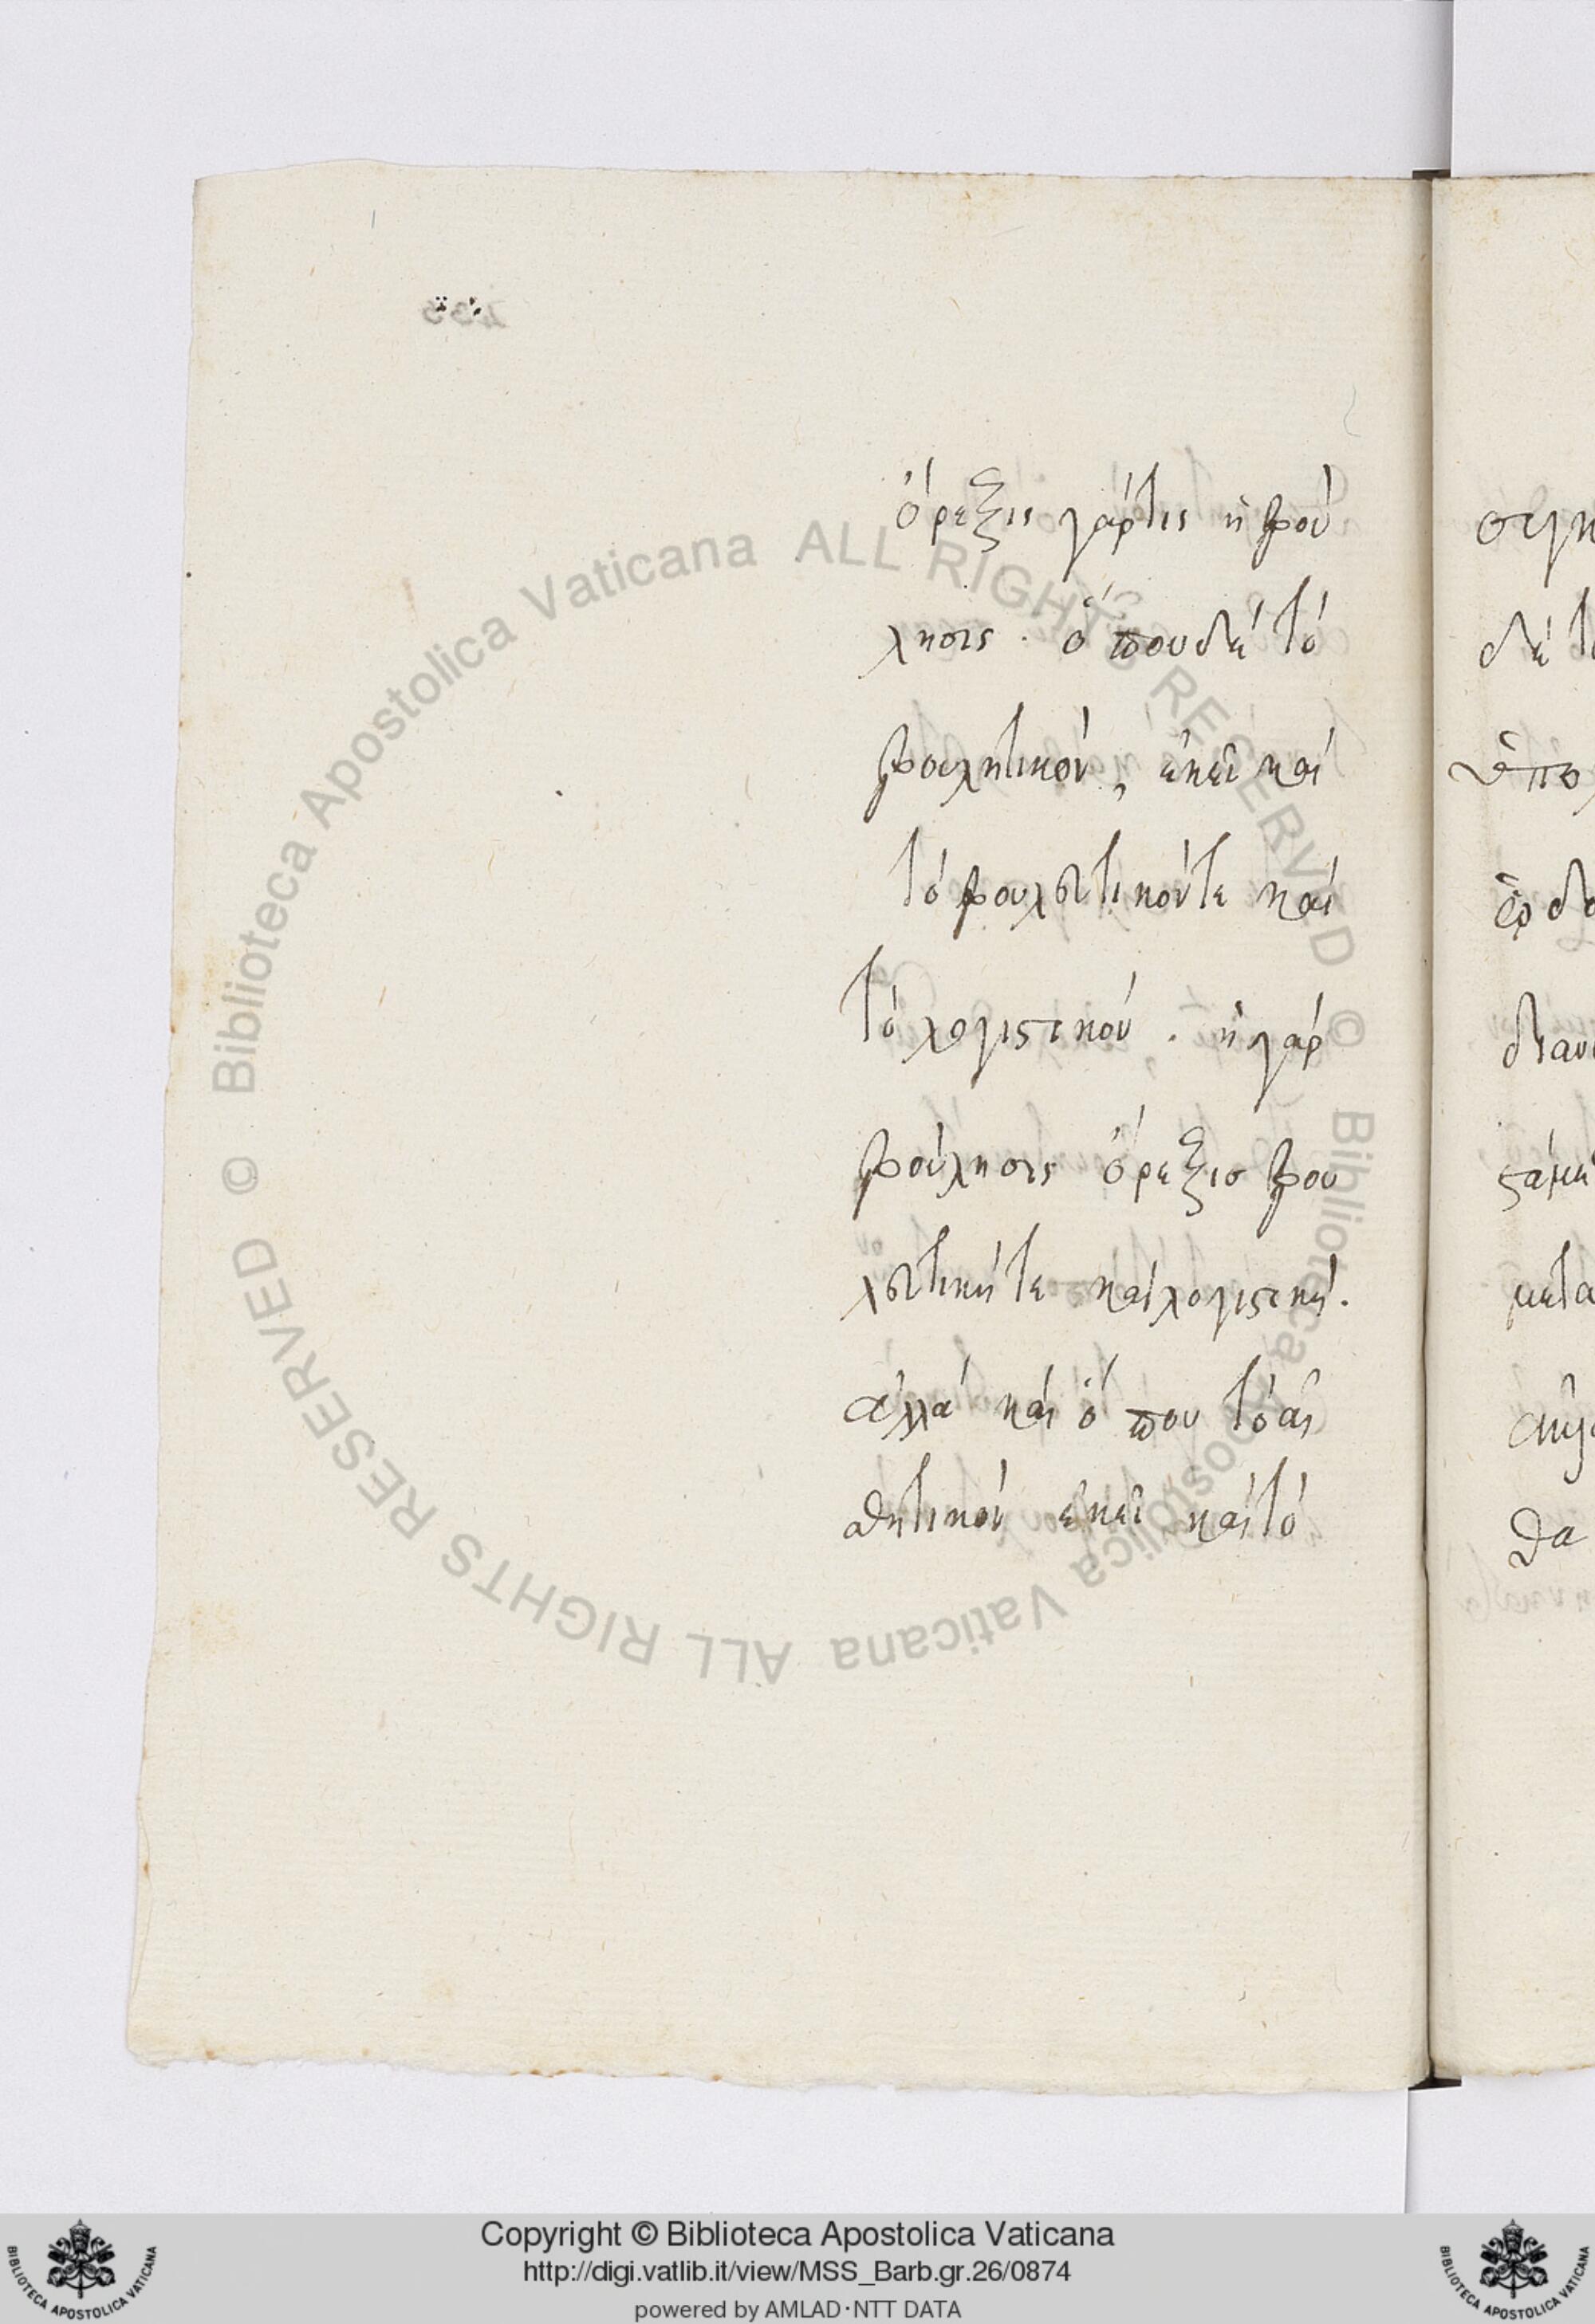 ὄρεξις γάρ τις ἡ βού
λησις. ὅπου δὲ τὸ
βουλητικὸν, ἐκεῖ καὶ
τὸ βουλευτικόν τε καὶ
τὸ λογιστικόν. ἡ γὰρ
βούλησις ὄρεξις βου
λευτική τε καὶ λογιστική.
ἀλλὰ καὶ ὅπου τὸ αἰ
σθητικὸν ἐκεῖ καὶ τὸ
Copyright © Biblioteca Apostolica Vaticana
http://digi.vatlib.it/view/MSS_Barb.gr.26/0874
powered by AMLAD·NTT DATA
© Biblioteca Apostolica Vaticana ALL RIGHTS RESERVED
© Biblioteca Apostolica Vaticana ALL RIGHTS RESERVED
BIBLIOTECA APOSTOLICA VATICANA
BIBLIOTECA APOSTOLICA VATICANA